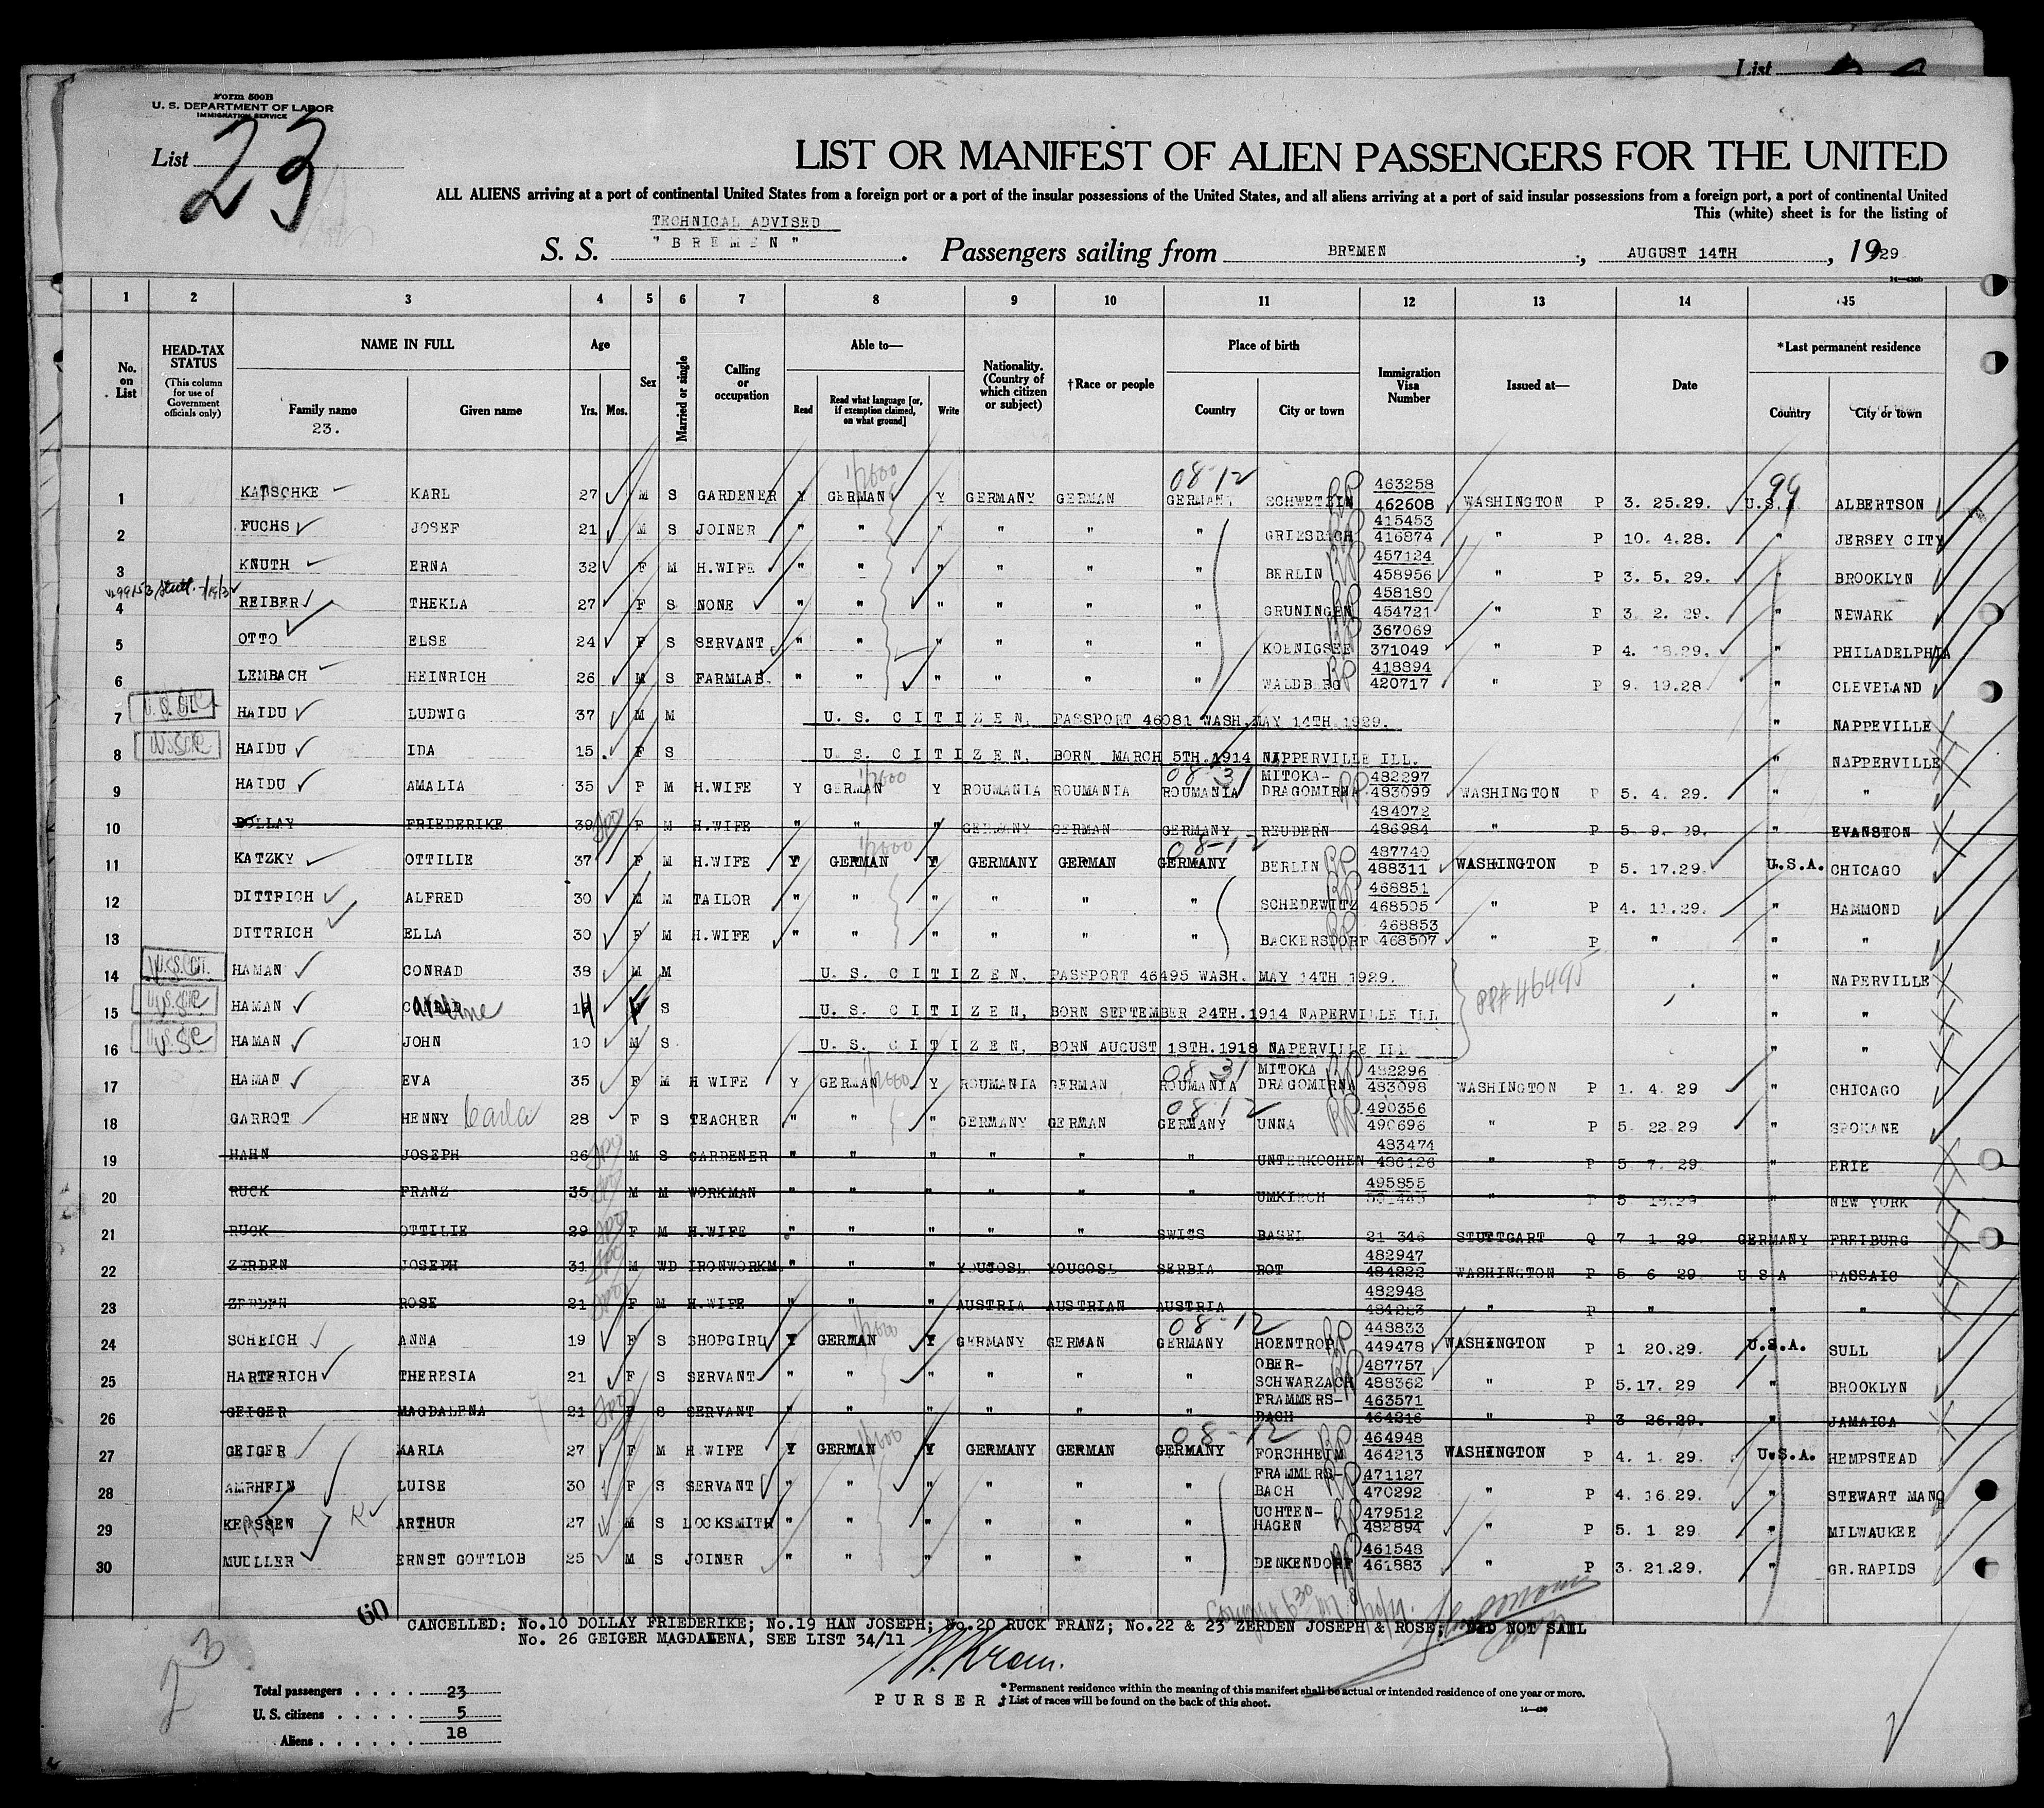 List
Form 500B
U. S. DEPARTMENT OF LABOR
IMMIGRATION SERVICE
List 23
LIST OR MANIFEST OF ALIEN PASSENGERS FOR THE UNITED
ALL ALIENS arriving at a port of continental United States from a foreign port or a port of the insular possessions of the United States, and all aliens arriving at a port of said insular possessions from a foreign port, a port of continental United
This (white) sheet is for the listing of
TECHNICAL ADVISED
S. S. "BREMEN". Passengers sailing from BREMEN, AUGUST 14TH, 1929
14-430b
1 2 3 4 5 6 7 8 9 10 11 12 13 14 15
No. on List
HEAD-TAX STATUS (This column for use of Government officials only)
NAME IN FULL Family name Given name
23.
Age Yrs. Mos.
Sex
Married or single
Calling or occupation
Able to— Read Read what language [or, if exemption claimed, on what ground] Write
Nationality. (Country of which citizen or subject)
†Race or people
Place of birth Country City or town
Immigration Visa Number
Issued at—
Date
*Last permanent residence Country City or town
1 KATSCHKE KARL 27 M S GARDENER Y GERMAN Y GERMANY GERMAN GERMANY 08-12 SCHWETZIN 463258 462608 WASHINGTON P 3. 25.29. U.S. 99 ALBERTSON
2 FUCHS JOSEF 21 M S JOINER " " " " " " GRIESBACH 415453 416874 " P 10. 4.28. " JERSEY CITY
3 KNUTH ERNA 32 F M H.WIFE " " " " " " BERLIN 457124 458956 " P 3. 5. 29. " BROOKLYN
4 REIBER THEKLA 27 F S NONE " " " " " " GRUNINGEN 458180 454721 " P 3 2. 29. " NEWARK
5 OTTO ELSE 24 F S SERVANT " " " " " " KOENIGSEE 367069 371049 " P 4. 18.29. " PHILADELPHIA
6 LEMBACH HEINRICH 26 M S FARMLAB. " " " " " " WALDBERG 418894 420717 " P 9. 19.28 " CLEVELAND
7 U.S. CIT. HAIDU LUDWIG 37 M M U. S. CITIZEN, PASSPORT 46081 WASH. MAY 14TH 1929. " NAPPEVILLE
8 HAIDU IDA 15. F S U. S. CITIZEN, BORN MARCH 5TH.1914 NAPPERVILLE ILL. " NAPPERVILLE
9 HAIDU AMALIA 35 F M H.WIFE Y GERMAN Y ROUMANIA ROUMANIA ROUMANIA 08-31 MITOKA-DRAGOMIRNA 482297 483099 WASHINGTON P 5. 4. 29. " "
10 DOLLAY FRIEDERIKE 39 F M H.WIFE " " " GERMANY GERMAN GERMANY REUDERN 484072 486984 " P 5 9. 29. " EVANSTON
11 KATZKY OTTILIE 37 F M H.WIFE Y GERMAN Y GERMANY GERMAN GERMANY 08-12 BERLIN 487740 488311 WASHINGTON P 5. 17.29. U.S.A. CHICAGO
12 DITTRICH ALFRED 30 M M TAILOR " " " " " " SCHEDEWITZ 468851 468505 " P 4. 11.29. " HAMMOND
13 DITTRICH ELLA 30 F M H.WIFE " " " " " " BACKERSDORF 468853 468507 " P " " "
14 U.S. CIT. HAMAN CONRAD 38 M M U. S. CITIZEN, PASSPORT 46495 WASH. MAY 14TH 1929. " NAPERVILLE
15 HAMAN 14 F S U. S. CITIZEN, BORN SEPTEMBER 24TH.1914 NAPERVILLE ILL PP# 46495 " "
16 HAMAN JOHN 10 M S U. S. CITIZEN, BORN AUGUST 18TH.1918 NAPERVILLE ILL " "
17 HAMAN EVA 35 F M H WIFE Y GERMAN Y ROUMANIA GERMAN ROUMANIA 08-31 MITOKA DRAGOMIRNA 482296 483098 WASHINGTON P 1. 4. 29 " CHICAGO
18 GARROT HENNY Carla 28 F S TEACHER " " " GERMANY GERMAN GERMANY 08-12 UNNA 490356 490696 " P 5 22.29 " SPOKANE
19 HAHN JOSEPH 26 M S GARDENER " " " " " " UNTERKOCHEN 483474 486126 " P 5 7. 29 " ERIE
20 RUCK FRANZ 35 M M WORKMAN " " " " " " UMKIRCH 495855 " P 5 " NEW YORK
21 RUCK OTTILIE 29 F M H.WIFE " " " " " SWITS BASEL 21 346 STUTTGART Q 7 1 29. GERMANY FREIBURG
22 ZERDEN JOSEPH 31 M WD IRONWORKM. " " " YOUGOSL YOUGOSL SERBIA ROT 482947 484222 WASHINGTON P 5 6 29 U S A PASSAIC
23 ZERDEN ROSE 21 F M H.WIFE " " " AUSTRIA AUSTRIAN AUSTRIA 482948 484223 " P " " "
24 SCHEICH ANNA 19 F S SHOPGIRL Y GERMAN Y GERMANY GERMAN GERMANY 08-12 HOENTROP 448833 449478 WASHINGTON P 1 20.29. U.S.A. SULL
25 HARTERICH THERESIA 21 F S SERVANT " " " " " " OBER-SCHWARZACH 487757 488362 " P 5.17. 29 " BROOKLYN
26 GEIGER MAGDALENA 21 F S SERVANT " " " " " " FRAMMERS-BACH 463571 464216 " P 3 26.29. " JAMAICA
27 GEIGER MARIA 27 F M H.WIFE Y GERMAN Y GERMANY GERMAN GERMANY 08-12 FORCHHEIM 464948 464213 WASHINGTON P 4. 1. 29. U.S.A. HEMPSTEAD
28 AMRHEIN LUISE 30 F S SERVANT " " " " " " FRAMMERS-BACH 471127 470292 " P 4. 16.29. " STEWART MANO
29 KERSSEN ARTHUR 27 M S LOCKSMITH " " " " " " UCHTEN-HAGEN 479512 482894 " P 5. 1 29 " MILWAUKEE
30 MUELLER ERNST GOTTLOB 25 M S JOINER " " " " " " DENKENDORF 461548 461883 " P 3. 21.29. " GR.RAPIDS
60
CANCELLED: No.10 DOLLAY FRIEDERIKE; No.19 HAN JOSEPH; No.20 RUCK FRANZ; No.22 & 23 ZERDEN JOSEPH & ROSE; DID NOT SAIL
No. 26 GEIGER MAGDALENA, SEE LIST 34/11
23
Total passengers . . . . 23
U. S. citizens . . . . . 5
Aliens . . . . . . 18
PURSER
* Permanent residence within the meaning of this manifest shall be actual or intended residence of one year or more.
† List of races will be found on the back of this sheet.
14-430